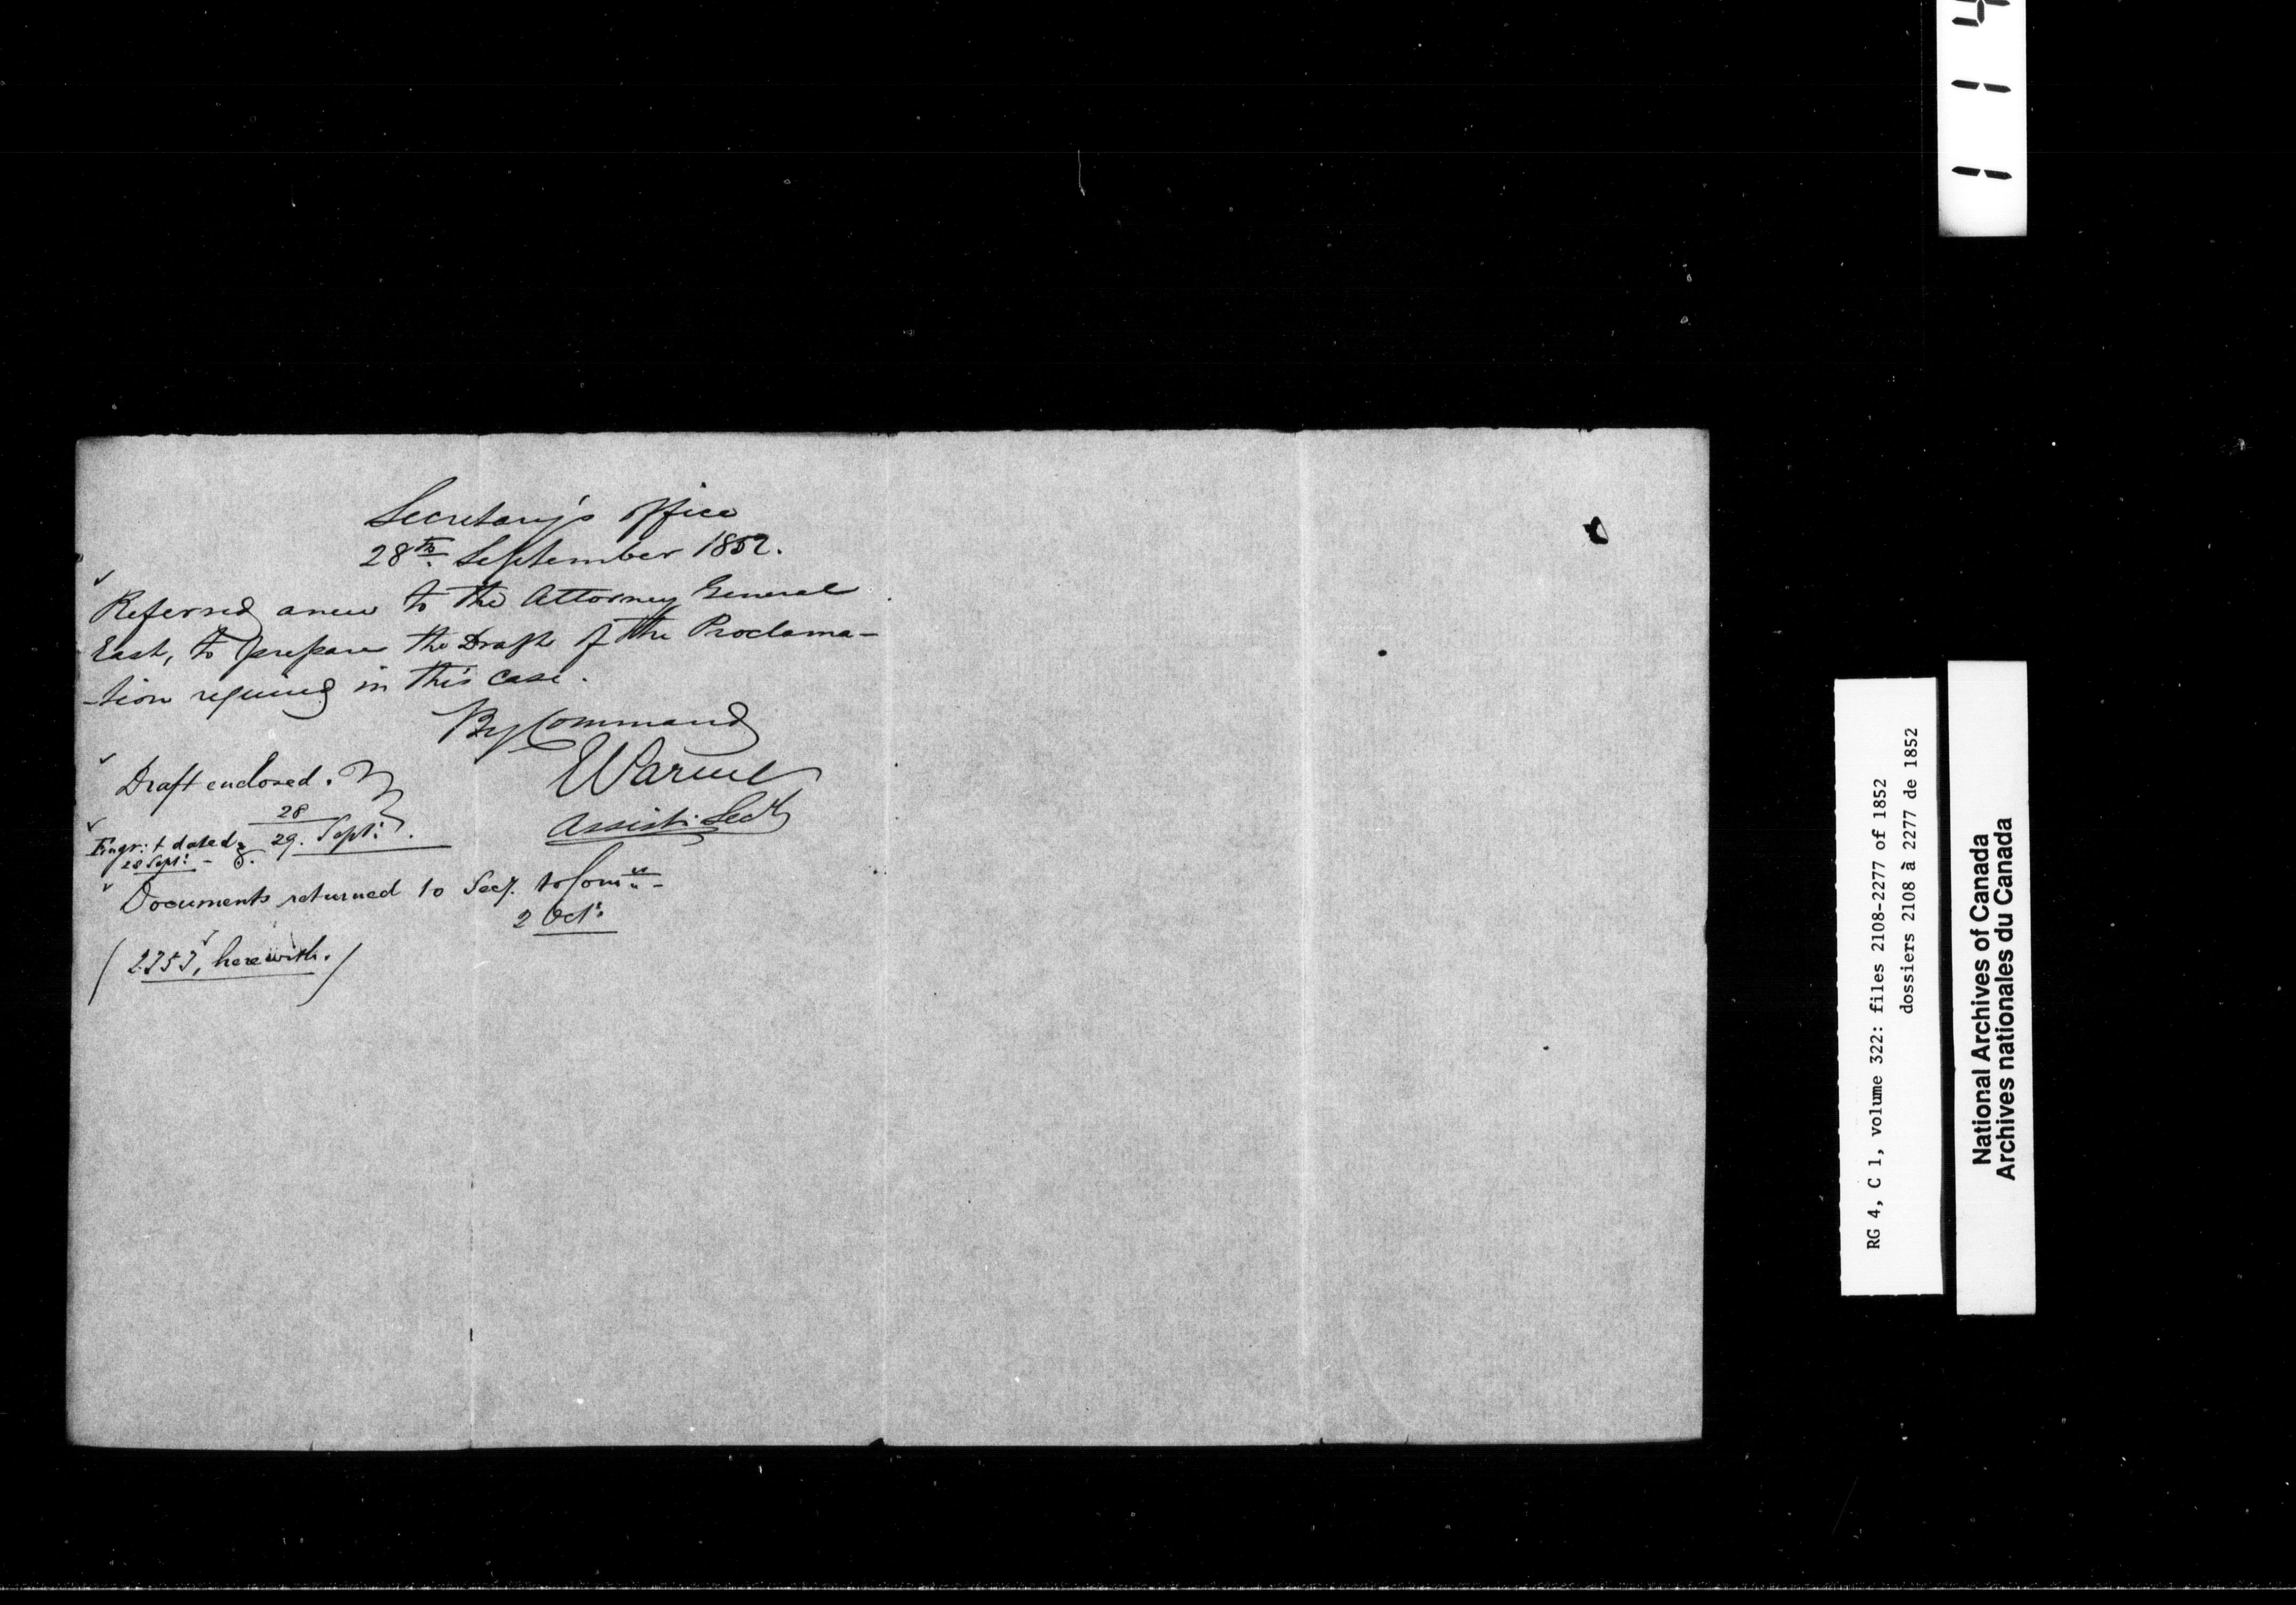 Secretary's Office
28th September 1852.
Referred anew to the Attorney General
East, to prepare the Draft of the Proclama-
-tion required in this case.
By Command
Assist. Secy
Draft enclosed.
28
Engr: & dated 29. Sept:
28 Sept: -
Documents returned to Secy. to
2 Oct:
herewith.
RG 4, C 1, volume 322: files 2108-2277 of 1852
dossiers 2108 à 2277 de 1852
National Archives of Canada
Archives nationales du Canada